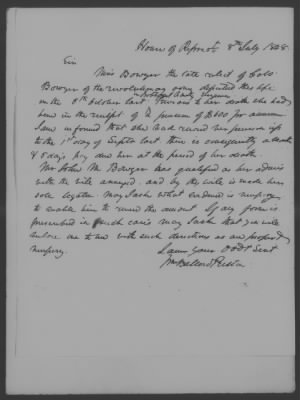 House of Repres 8th July 1848
Sir
Mrs Bowyer the late relict of Colo
Bowyer of the revolutionary army departed this life
in Botetourt County Virginia
on the 8th October last. Previous to her death she had
been in the receipt of a pension of $600 per annum
I am informed that she had recd her pension up
to the 1st day of Septr last there is consequently a month
& 8 days pay due her at the period of her death.
Mr John M. Bowyer has qualified as her admir
with the will annexed, and by the will is made her
sole legatee may I ask what evidence is necessary
to enable him to receive the amount. If any form is
prescribed in such cases may I ask that you will
enclose one to me with such directions as are proper &
necessary.
I am your Obdt Servt
Wm Ballard Preston